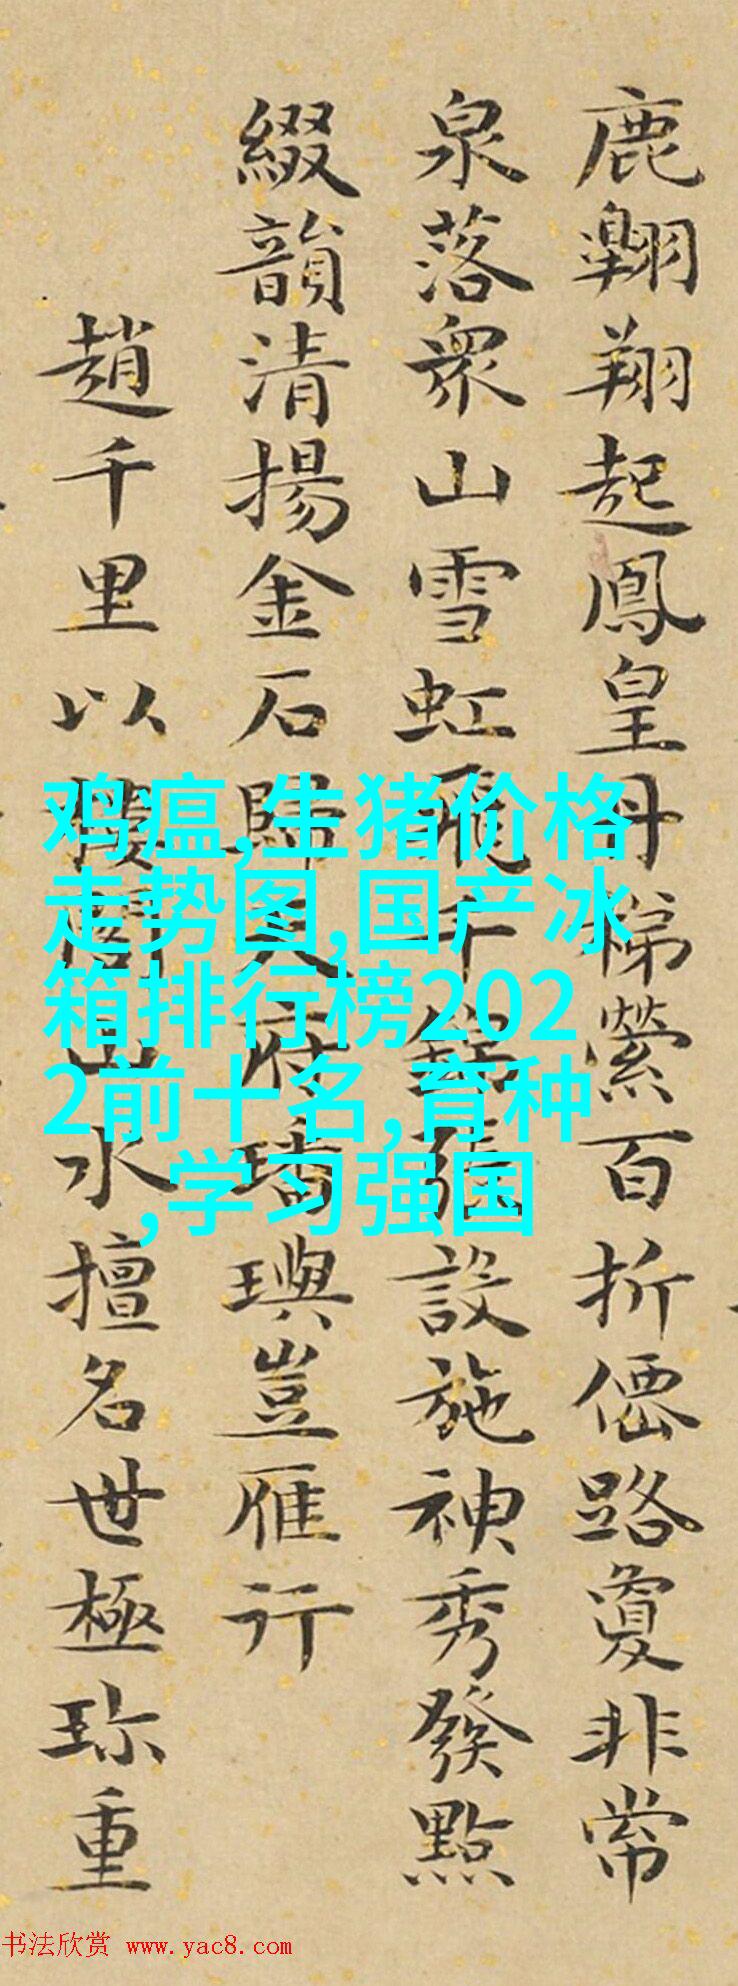 鹿翺翔起鳳皇丹梯縈百折僊路敻非常
泉落衆山雪虹飛千張設施神秀發點
綴韻清揚金石歸天府璠璵豈雁行
趙千里以閣山水擅名世極珎重
鸡瘟,生猪价格
走势图,国产冰
箱排行榜202
2前十名,育种
,学习强国
书法欣赏 www.yac8.com